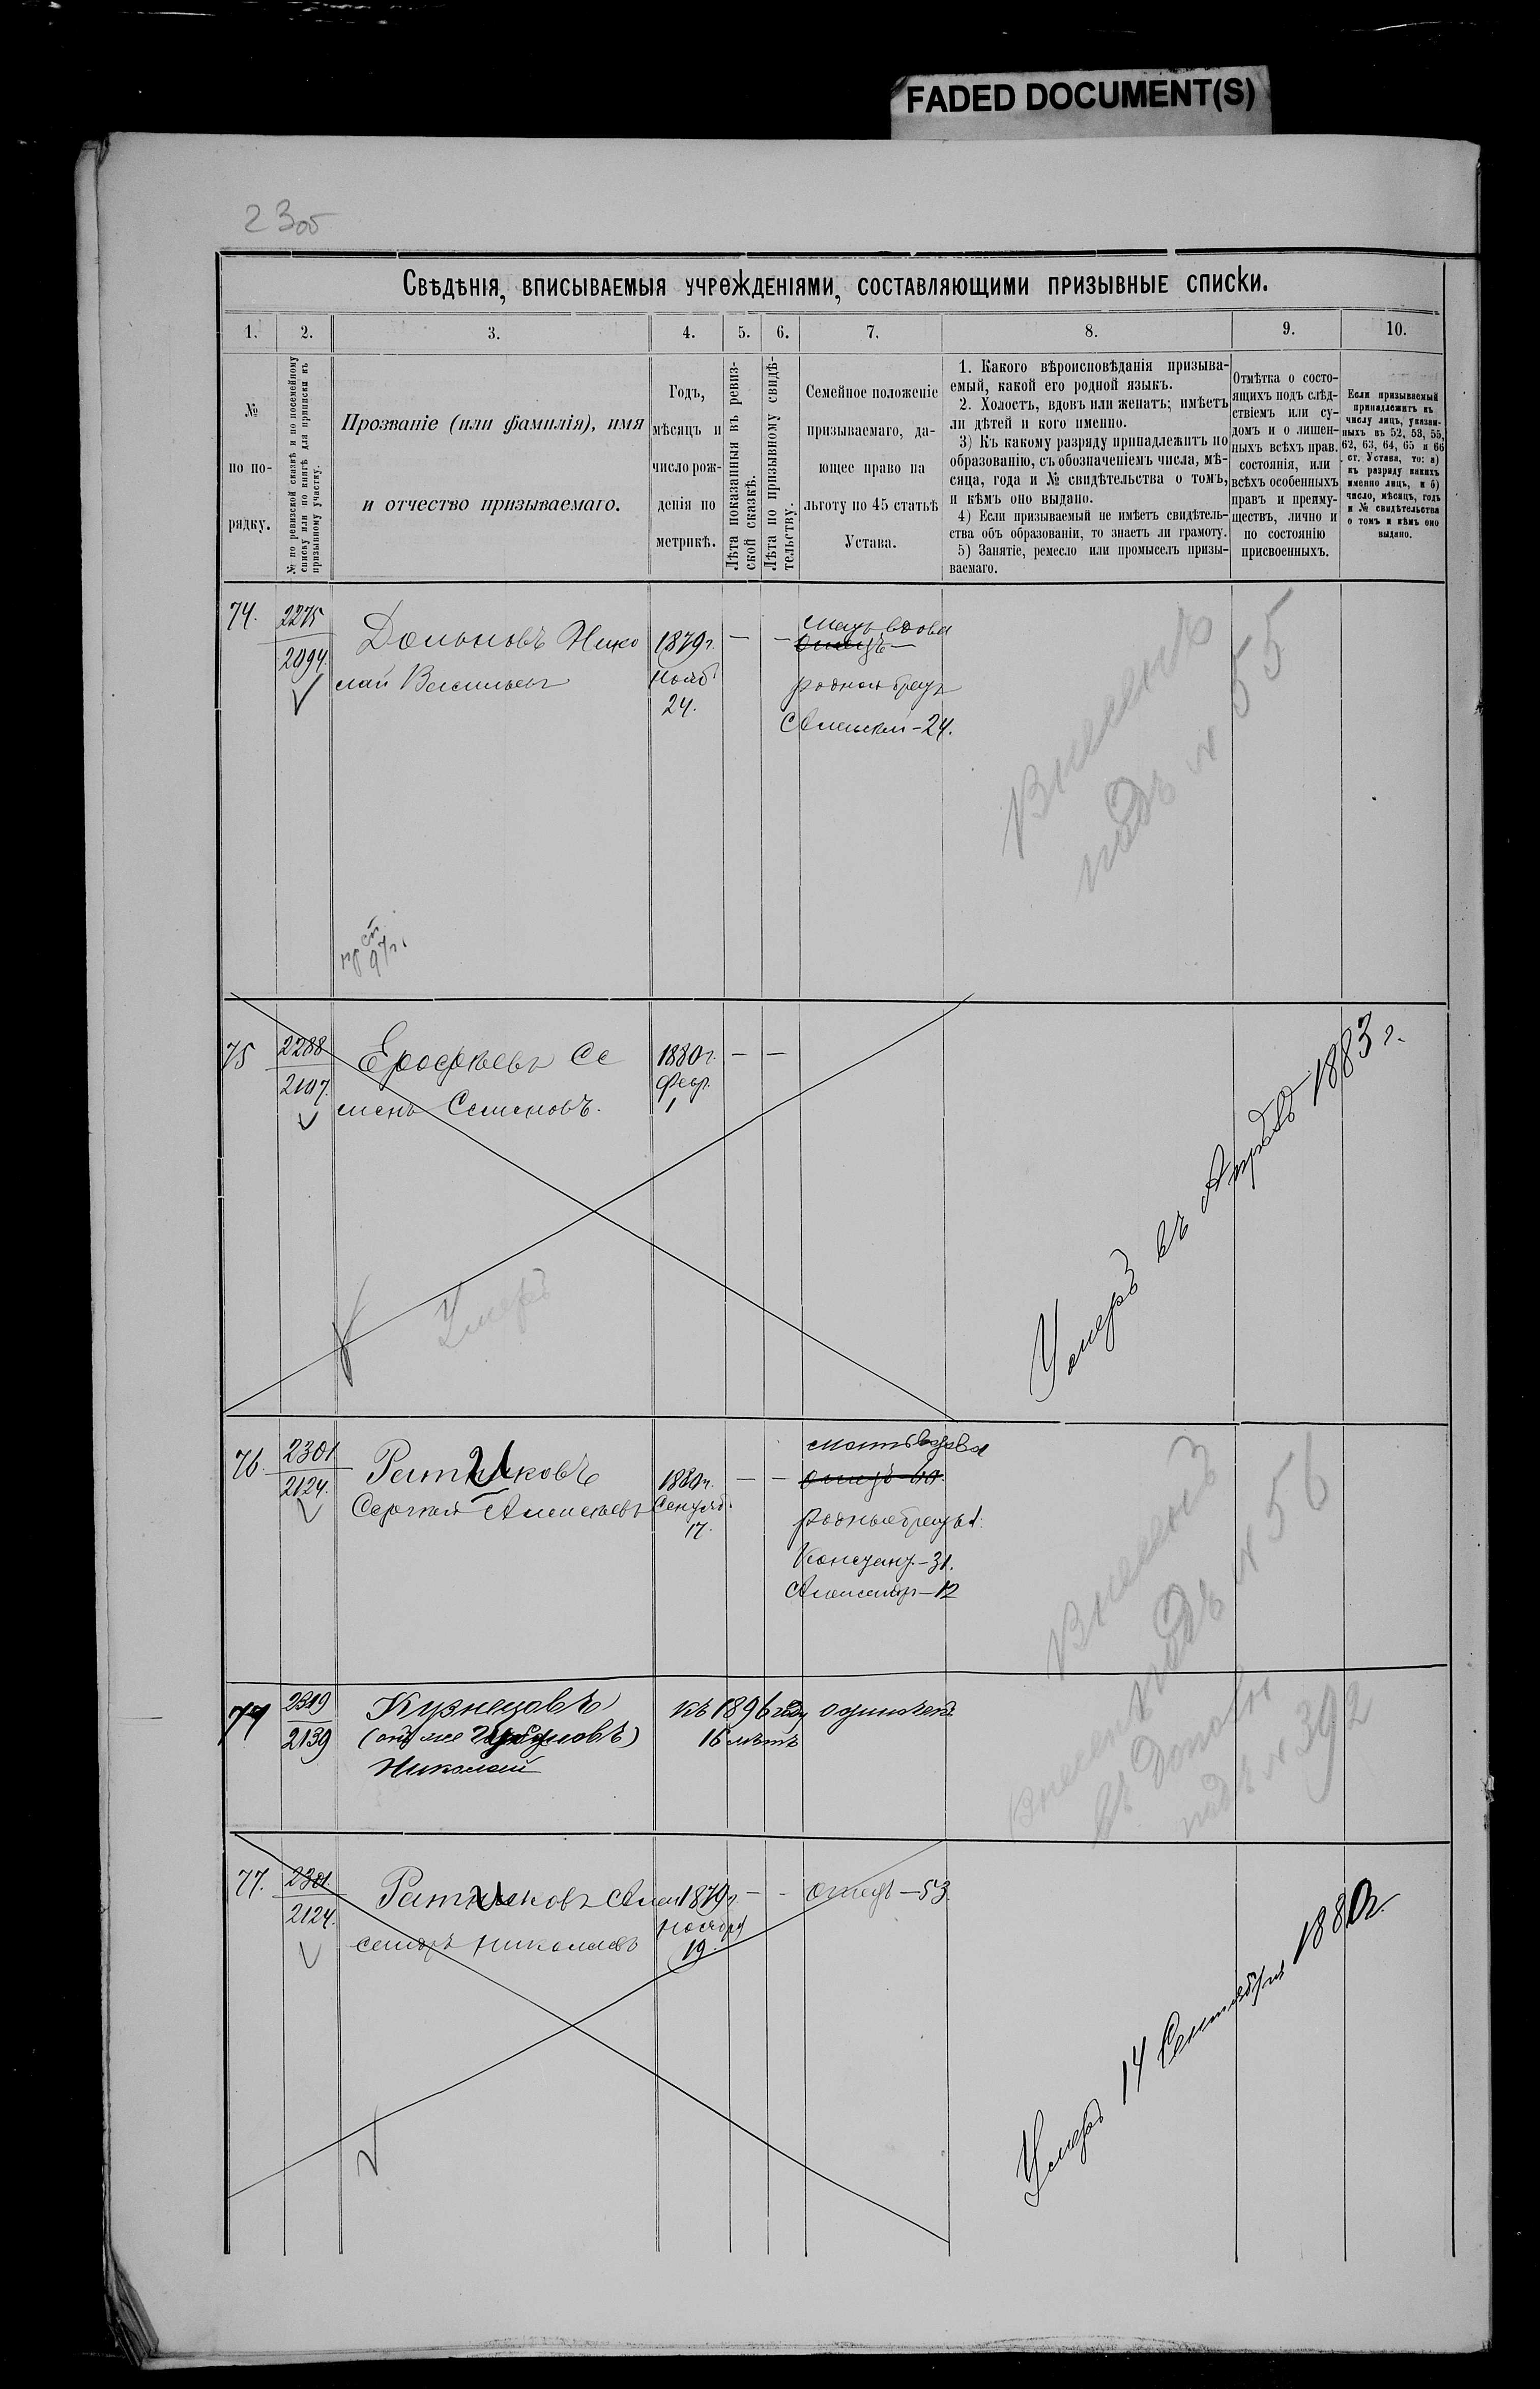 FADED DOCUMENT(S)
23об
Свѣдѣнія, вписываемыя учрежденіями, составляющими призывные списки.
1. 2. 3. 4. 5. 6. 7. 8. 9. 10.
№
по по-
рядку.
№ по ревизской сказкѣ и по посемейному
списку или по книгѣ для приписки къ
призывному участку.
Прозваніе (или фамилія), имя
и отчество призываемаго.
Годъ,
мѣсяцъ и
число рож-
денія по
метрикѣ.
Лѣта показанныя въ ревиз-
ской сказкѣ.
Лѣта по призывному свидѣ-
тельству.
Семейное положеніе
призываемаго, да-
ющее право на
льготу по 45 статьѣ
Устава.
1. Какого вѣроисповѣданія призыва-
емый, какой его родной языкъ.
2. Холостъ, вдовъ или женатъ; имѣетъ
ли дѣтей и кого именно.
3) Къ какому разряду принадлежитъ по
образованію, съ обозначеніемъ числа, мѣ-
сяца, года и № свидѣтельства о томъ,
и кѣмъ оно выдано.
4) Если призываемый не имѣетъ свидѣтель-
ства объ образованіи, то знаетъ ли грамоту.
5) Занятіе, ремесло или промыселъ призы-
ваемаго.
Отмѣтка о состо-
ящихъ подъ слѣд-
ствіемъ или су-
домъ и о лишен-
ныхъ всѣхъ правъ
состоянія, или
всѣхъ особенныхъ
правъ и преиму-
ществъ, лично и
по состоянію
присвоенныхъ.
Если призываемый
принадлежитъ къ
числу лицъ, указан-
ныхъ въ 52, 53, 55,
62, 63, 64, 65 и 66
ст. Устава, то: а)
къ разряду какихъ
именно лицъ, и б)
число, мѣсяцъ, годъ
и № свидѣтельства
о томъ и кѣмъ оно
выдано.
74. 2275
2094.
Нико
лай Васильевъ
1879 г.
Нояб
24.
— —
мать вдова
отецъ —
родной братъ
Алексѣй - 24.
Внесенъ
подъ № 55
97 г.
75 2288
2107.
Ерофѣевъ Се
менъ Семеновъ.
1880 г.
Февр.
1
— —
Умеръ
Умеръ въ Апрѣлѣ 1883 г.
76. 2301
2124.
Ратниковъ
Сергѣй Алексѣевъ
1880 г.
Сентяб.
17.
— —
мать вдова
отецъ 60.
родные братья:
Констант. - 31.
Александр - 12
Внесенъ
подъ № 56
77 2319
2139
Кузнецовъ
(онъ же
Николай
къ 1896 году
16 лѣтъ
одиночка
Внесенъ
въ допол
подъ № 392
77. 2301.
2124.
Ратниковъ Алек
сандръ Николаевъ
1879 г.
Ноября
19.
— -
отецъ - 53
Умеръ 14 Сентября 1880 г.